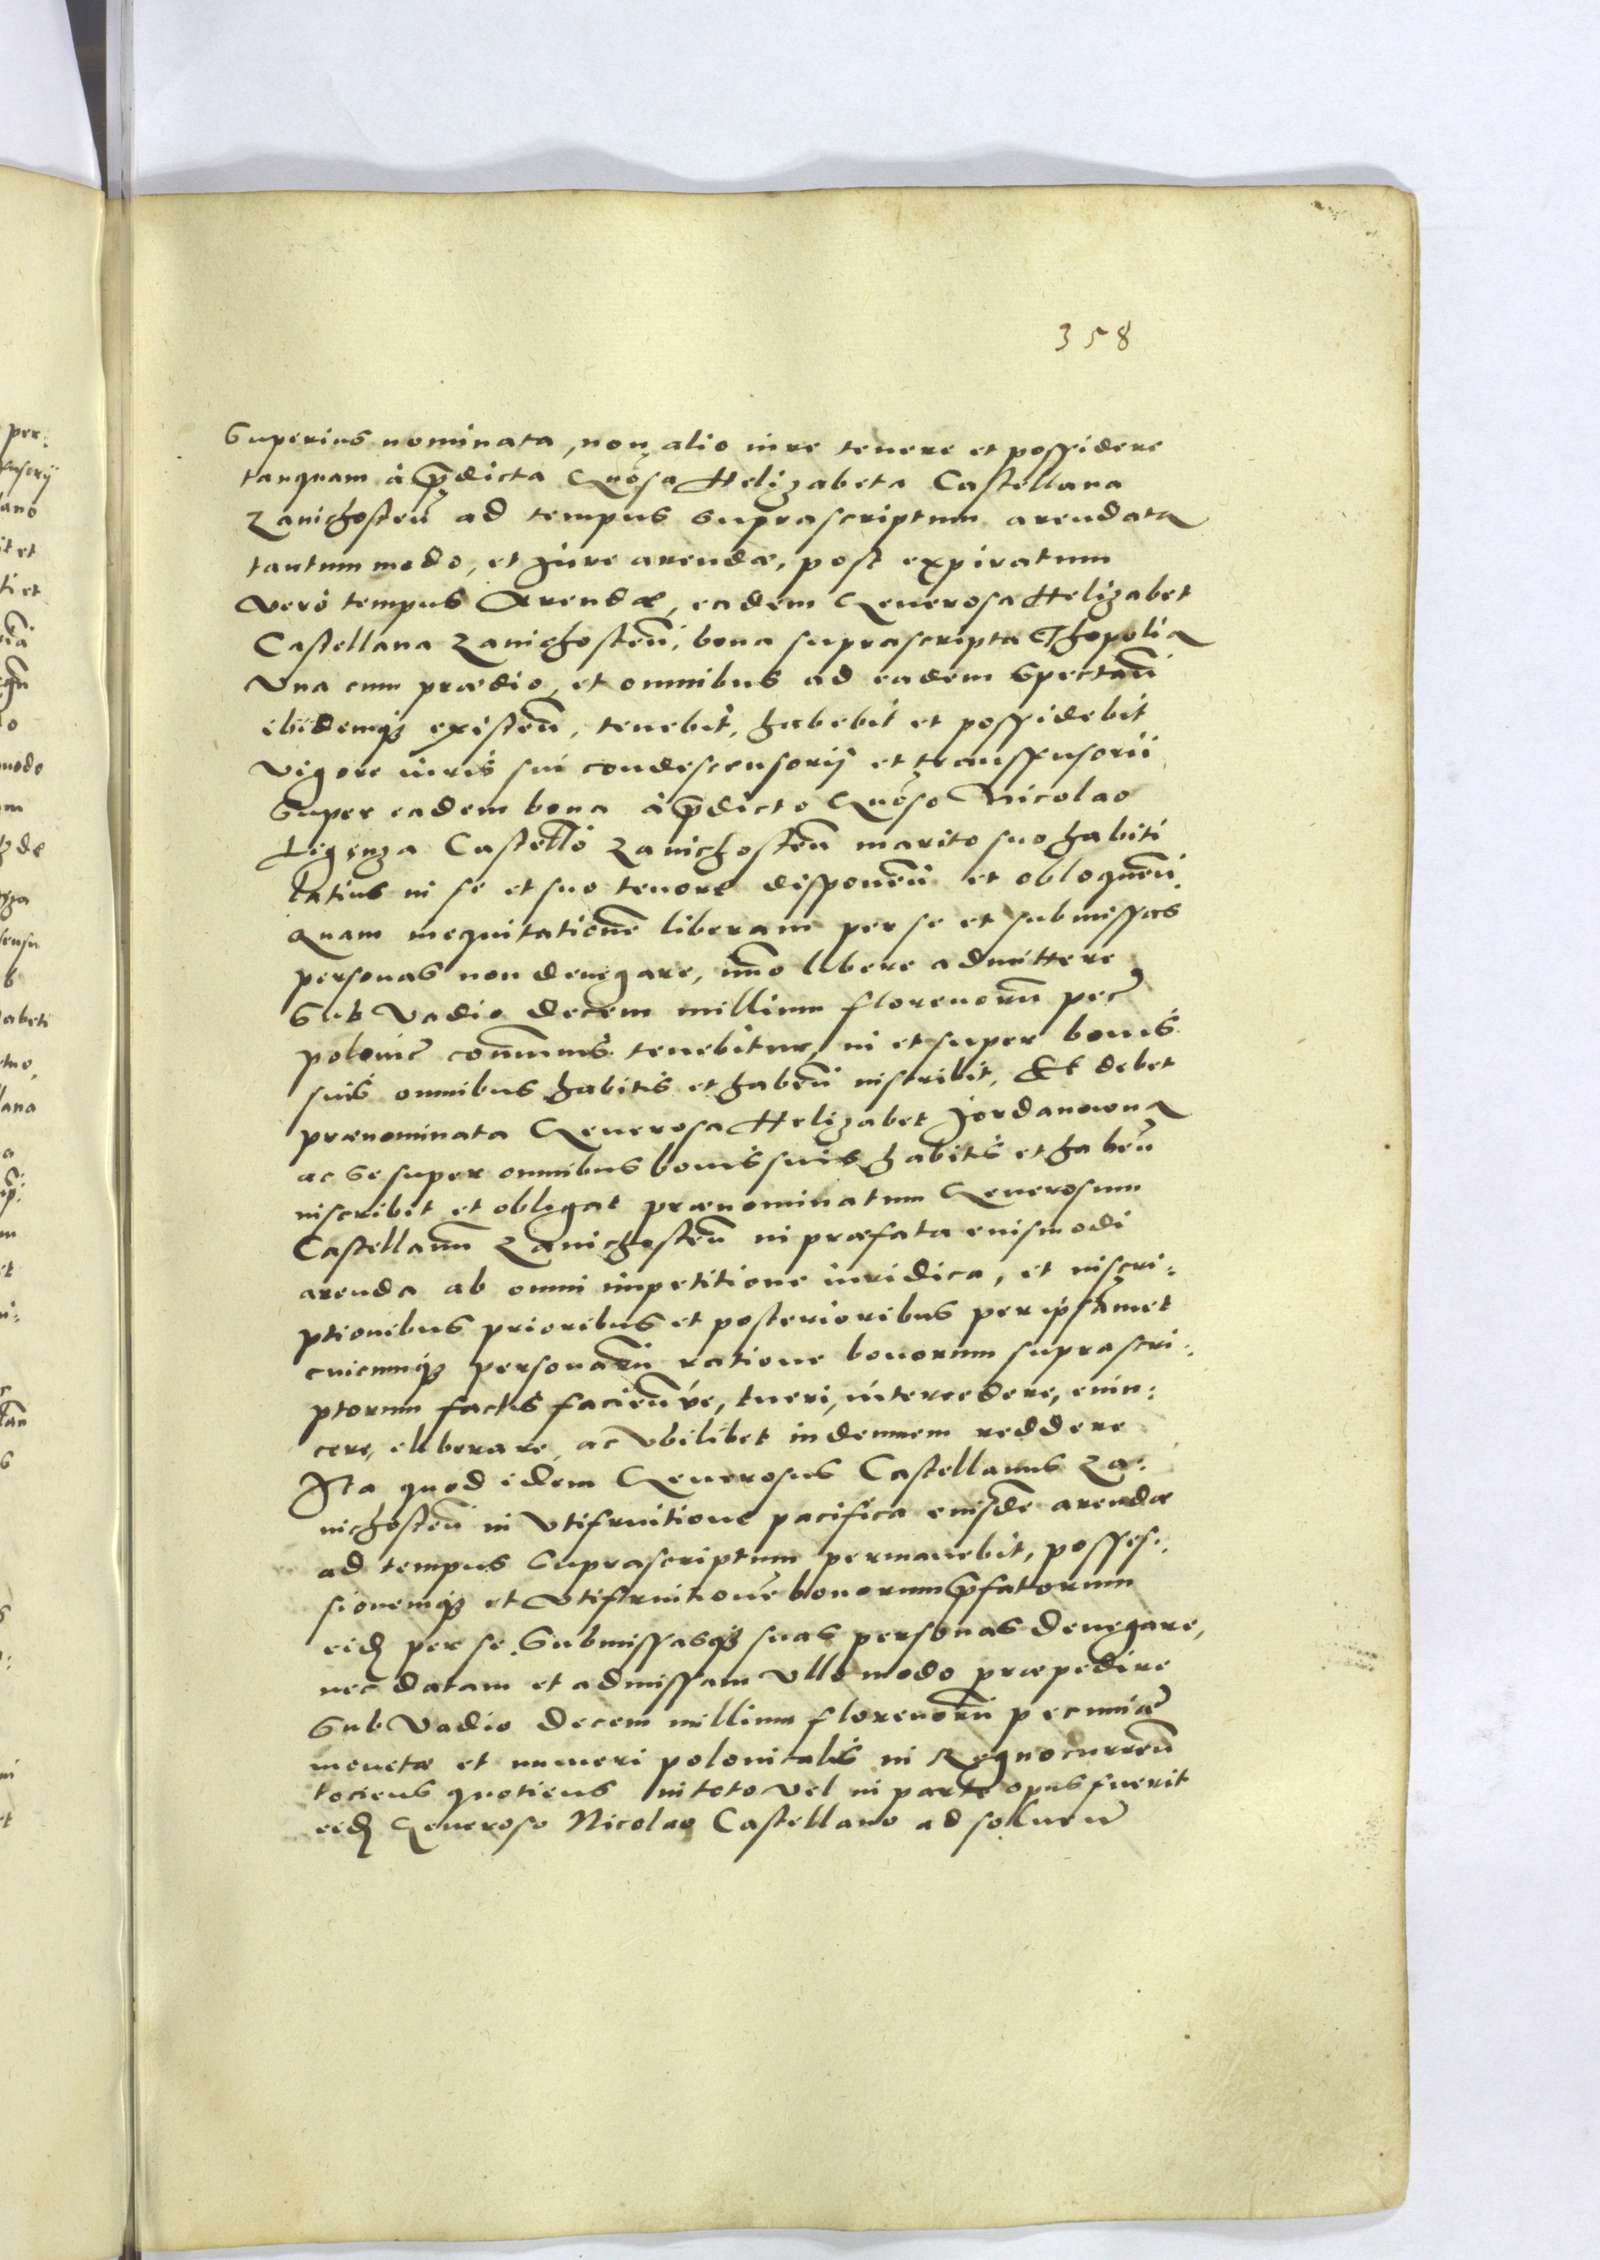 358
Superius nominata, non alio iure tenere et possidere
tanquam à p̄dicta Gnosa Helizabeta Castellana
Zanichosteñ ad tempus suprascriptum arendata
tantummodo, et iure arendæ, post expiratum
vero tempus Arendæ, eadem Generosa Helizabet
Castellana Zanichosteñ, bona suprascripta Thopolia
Vna cum prædio, et omnibus ad eadem spectañ
ibidemq; existeñ, tenebit, habebit et possidebit
vigore iuris sui condescensorij et transfusorii
super eadem bona à p̄dicto Gnoso Nicolao
Ligenza Castello Zanichosteñ marito suo habiti
latius in se et suo tenore disponeñ et obloqueñ
quam inequitatione liberam per se et submissas
personas non denegare, imo libere admittere
Sub vadio decem millium florenorū pec
polonic communis tenebitur, in et super bonis
suis omnibus habitis et habeñ inscribit, Et debet
prænominata Generosa Helizabet Jordanowna
ac se super omnibus bonis suis habitis et habeñ
inscribit et obligat prænominatum Generosum
Castellanū Zanichosteñ in præfata euismodi
arenda ab omni impetitione iuridica, et inscri-
ptionibus prioribus et posterioribus per ipsāmet
cuicumq; personarū ratione bonorum suprascri-
ptorum factis facieñve, tueri, intercedere, euin-
cere, eliberare, ac vbilibet indemnem reddere
Ita quod idem Generosus Castellanus Za-
nichosteñ in vtifruitione pacifica eiusdē arendæ
ad tempus suprascriptum permanebit, posses-
sionemq; et vtifruitionē bonorum p̄fatorum
eid per se submissasq; suas personas denegare,
nec datam et admissam vllo modo præpedire
Sub vadio decem millium florenorū pecuniæ
monetæ et numeri polonicalis in Regno curreñ
tociens quotiens in toto vel in parte opus fuerit
eid Generoso Nicolao Castellano ad solueñ